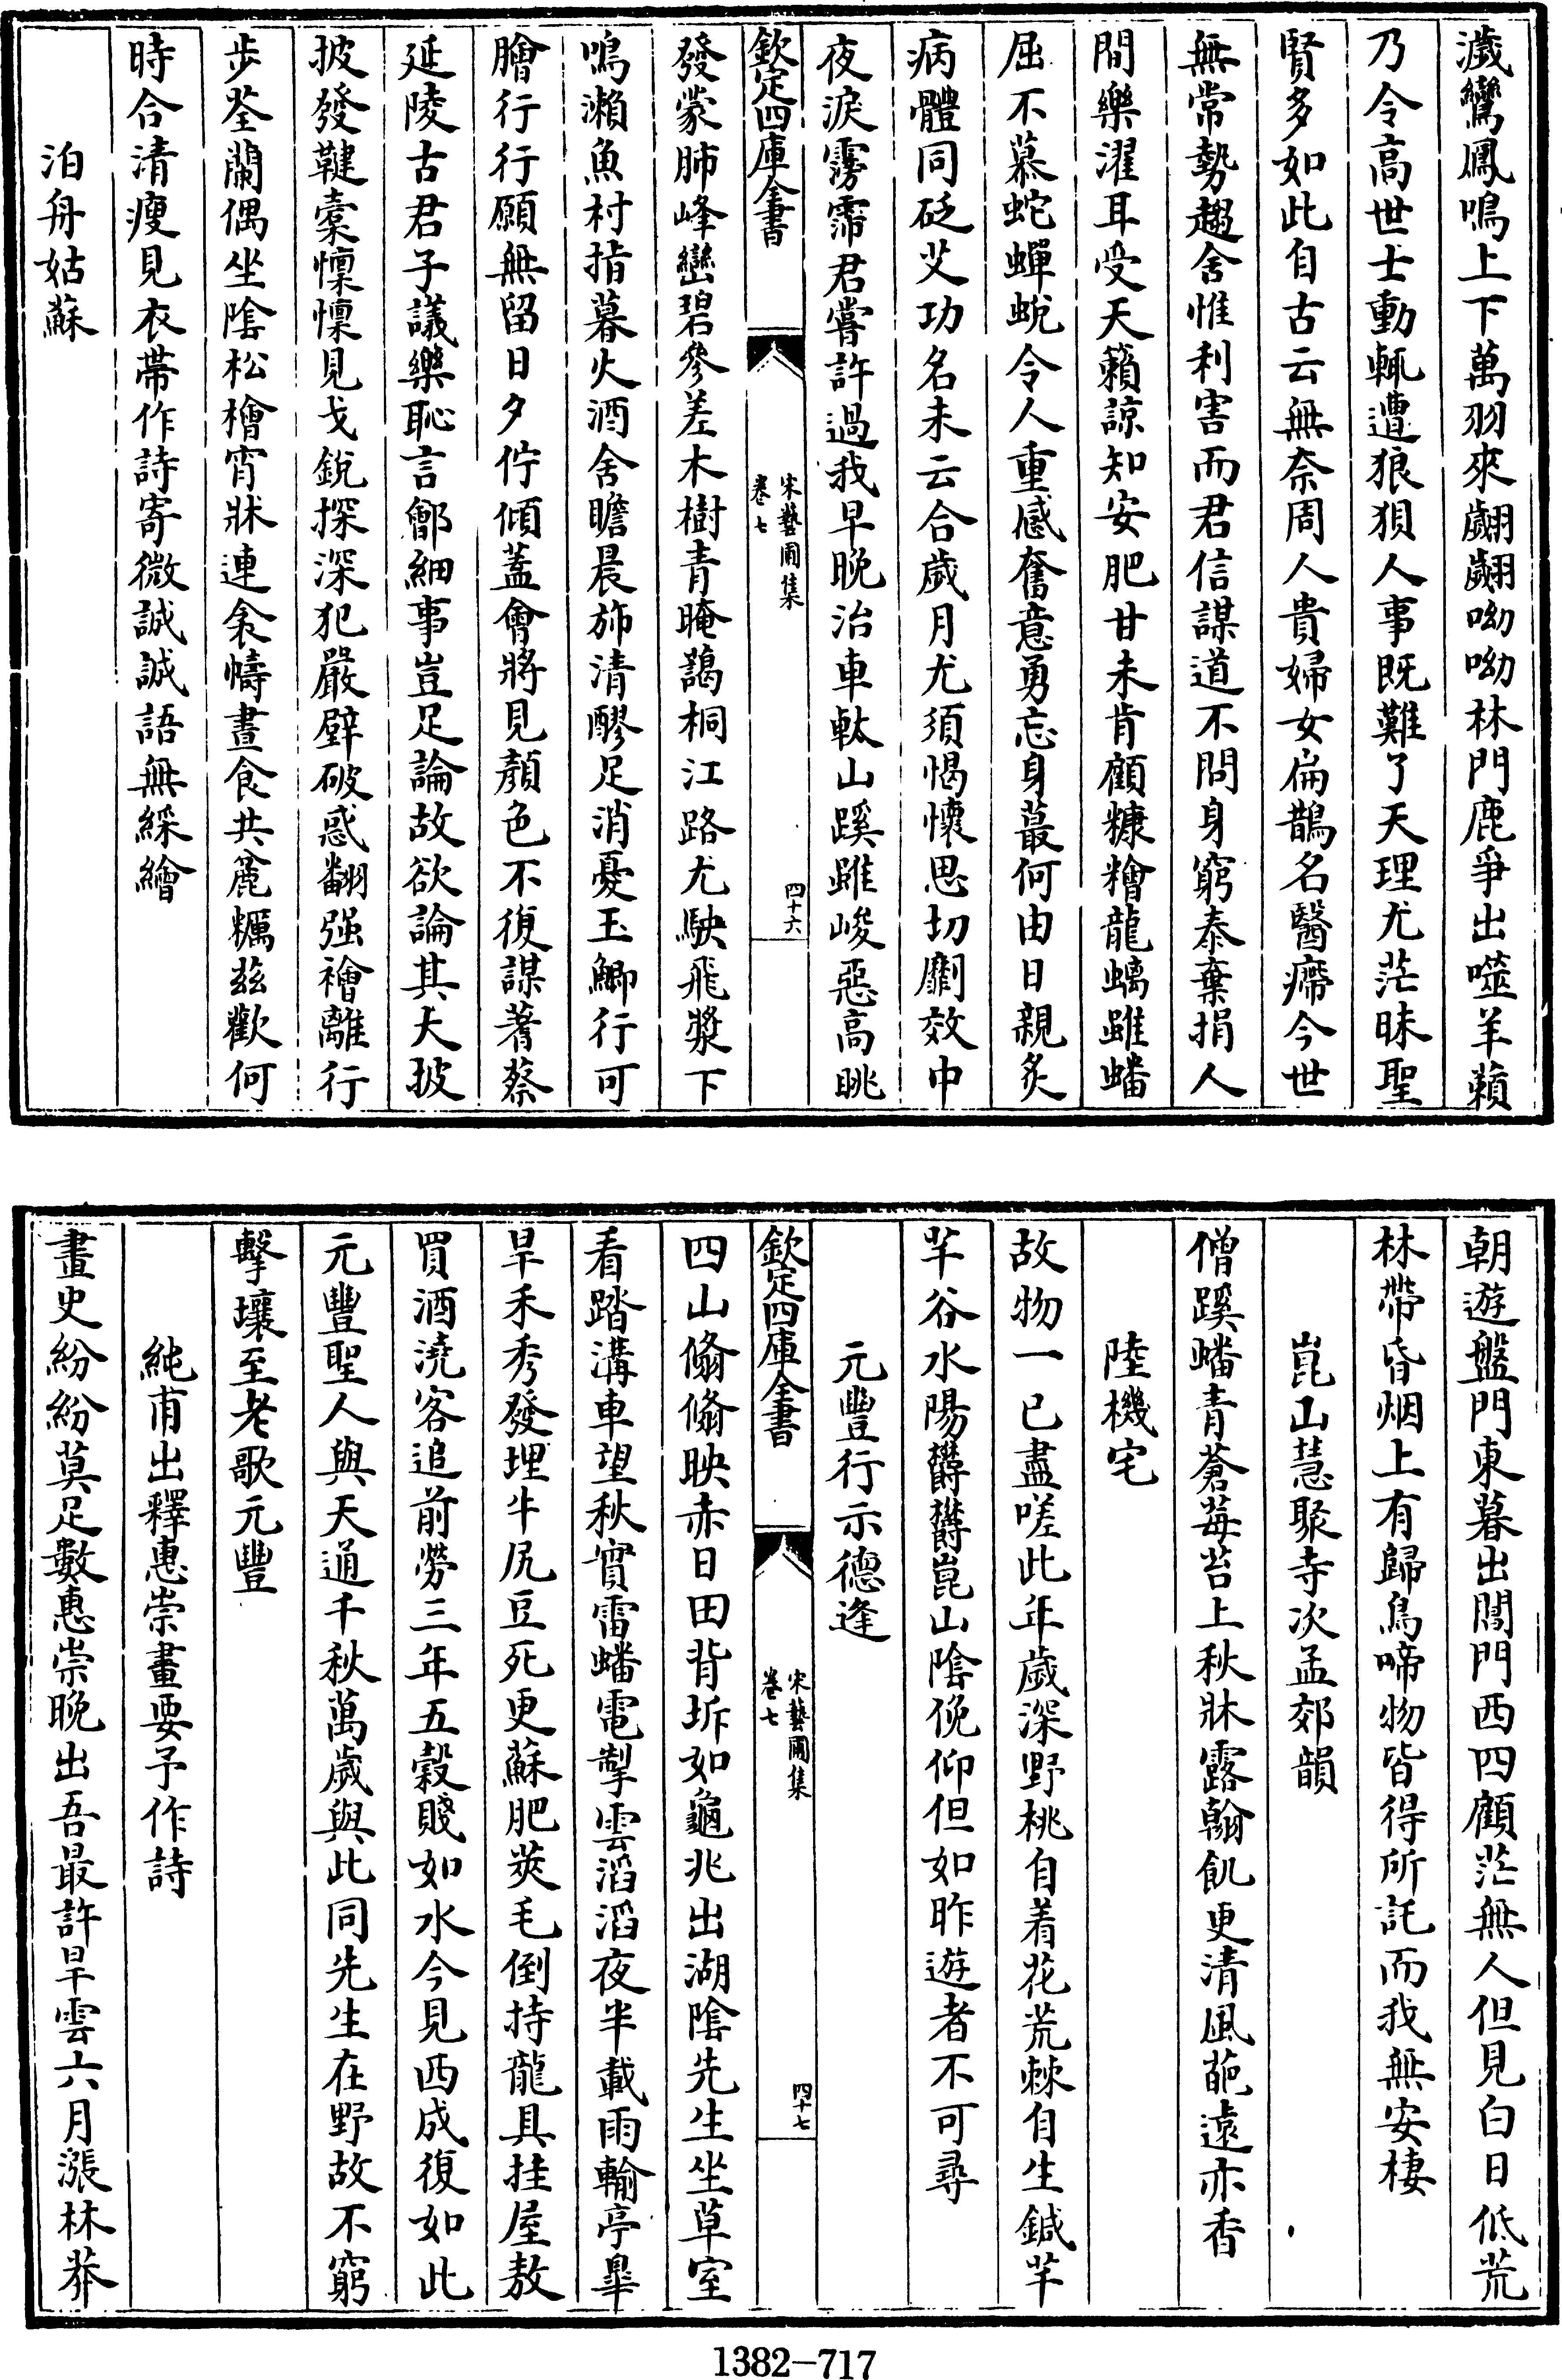 濊鸞鳳鳴上下萬羽來翽翽呦呦林門鹿爭出噬羊藾
乃令高世士動輒遭狼狽人事既難了天理尤茫昧聖
賢多如此自古云無奈周人貴婦女扁鵲名醫㿃今世
無常勢趨舍惟利害而君信謀道不問身窮泰棄捐人
間樂濯耳受天籟諒知安肥甘未肯顧糠糩龍螭雖蟠
屈不慕蛇蟬蛻令人重感奮意勇忘身蕞何由日親炙
病體同砭艾功名未云合歲月尤須愒懷思切劘效中
夜淚霶霈君嘗許過我早晚治車軑山蹊雖峻惡高眺
欽定四庫全書
宋藝圃集
卷七
四十六
發蒙肺峰巒碧參差木樹青晻藹桐江路尤駛飛漿下
鳴瀨魚村指暮火酒舍瞻晨斾清醪足消憂玉鯽行可
膾行行願無留日夕佇傾蓋會將見顏色不復謀蓍蔡
延陵古君子議樂恥言鄶細事豈足論故欲論其大披
披發鞬櫜懍懍見戈銳探深犯嚴壁破惑翻强襘離行
步荃蘭偶坐陰松檜宵牀連衾幬晝食共麄糲茲歡何
時合清瘦見衣帶作詩寄微誠誠語無綵繪
泊舟姑蘇
朝遊盤門東暮出閶門西四顧茫無人但見白日低荒
林帶昏烟上有歸鳥啼物皆得所託而我無安棲
崑山慧聚寺次孟郊韻
僧蹊蟠青蒼莓苔上秋牀露翰飢更清風葩遠亦香
陸機宅
故物一已盡嗟此年歲深野桃自着花荒棘自生鍼芊
芊谷水陽欝欝崑山陰俛仰但如昨遊者不可尋
元豐行示德逢
欽定四庫全書
宋藝圃集
卷七
四十七
四山翛翛映赤日田背坼如龜兆出湖陰先生坐草室
看踏溝車望秋實雷蟠電掣雲滔滔夜半載雨輸亭臯
旱禾秀發埋牛尻豆死更蘇肥莢毛倒持龍具挂屋敖
買酒澆客追前勞三年五穀賤如水今見西成復如此
元豐聖人與天通千秋萬歲與此同先生在野故不窮
擊壤至老歌元豐
純甫出釋惠崇畫要予作詩
畫史紛紛莫足數惠崇晚出吾最許旱雲六月漲林莽
1382-717